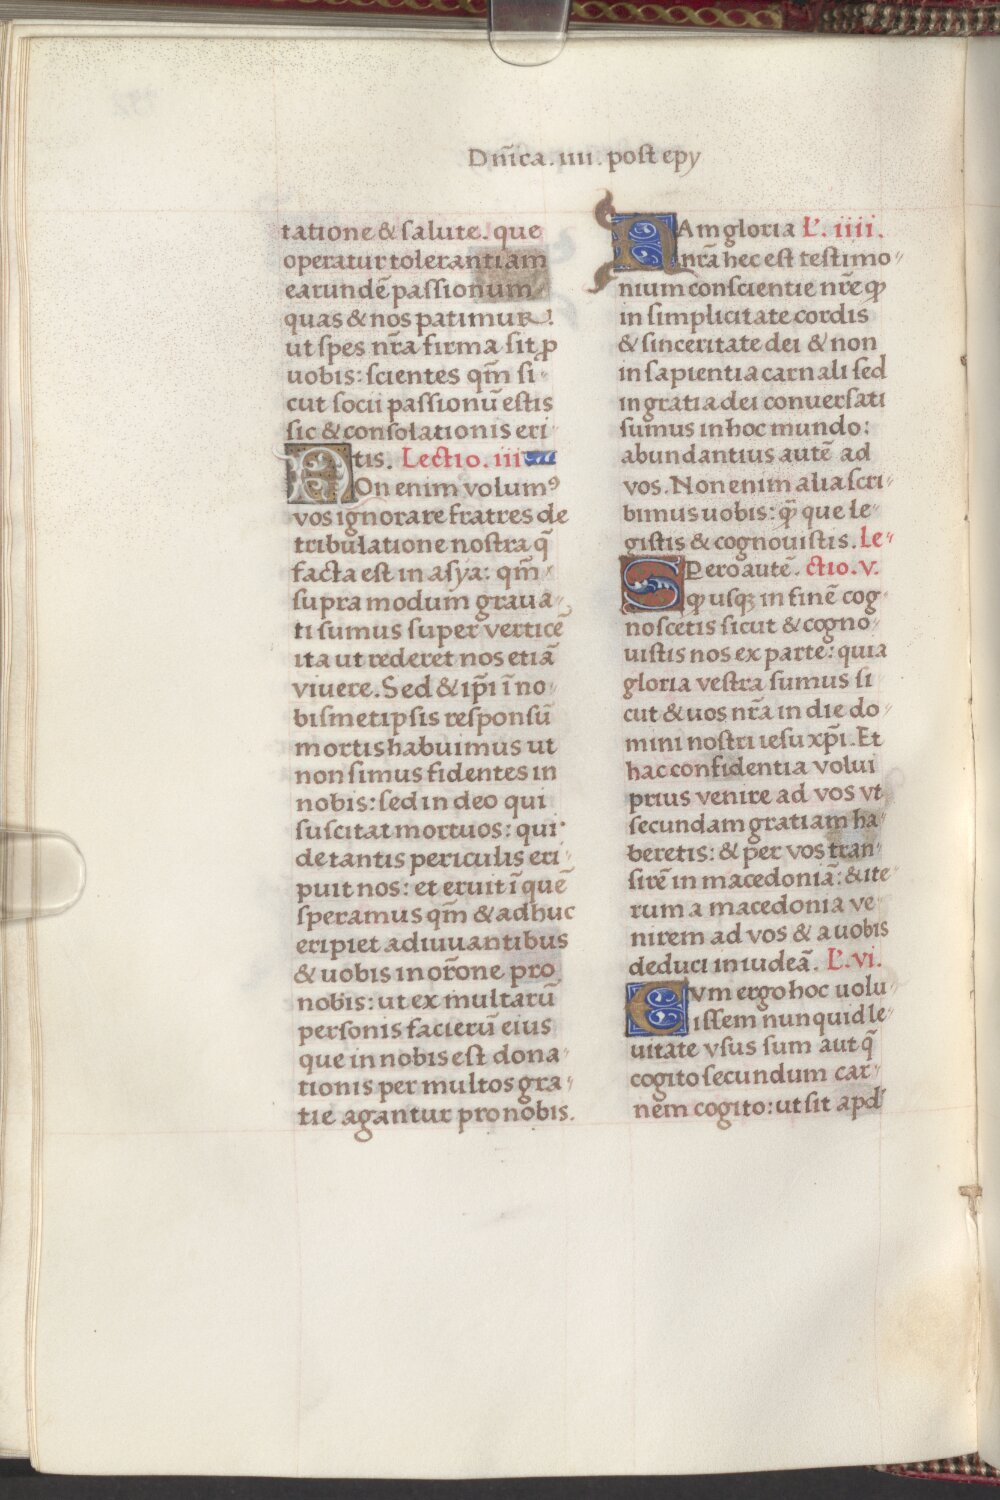 Dn̄ica. iiii. post epy
tatione & salute. que
operatur tolerantiam
earundē passionum
quas & nos patimur.
ut spes nr̄a firma sit ꝓ
uobis: scientes qm̄ si-
cut socii passionū estis
sic & consolationis eri-
tis. Lectio. iii
NOn enim volumꝰ
vos ignorare fratres de
tribulatione nostra q̄
facta est in asya: qm̄
supra modum graua-
ti sumus super verticē
ita ut tederet nos etiā
viuere. Sed & ip̄i ī no-
bismetipsis responsū
mortis habuimus ut
non simus fidentes in
nobis: sed in deo qui
suscitat mortuos: qui
de tantis periculis eri-
puit nos: et eruit ī quē
speramus qm̄ & adhuc
eripiet adiuuantibus
& uobis in or̄one pro
nobis: ut ex multarū
personis facierū eius
que in nobis est dona-
tionis per multos gra-
tie agantur pro nobis.
NAm gloria L'. iiii.
nr̄a hec est testimo-
nium conscientie nr̄e ꝙ
in simplicitate cordis
& sinceritate dei & non
in sapientia carnali sed
in gratia dei conuersati
sumus in hoc mundo:
abundantius autē ad
vos. Non enim alia scri-
bimus uobis: q̄ que le-
gistis & cognouistis. Le-
SPero autē. ctio. v.
ꝙ usqꝫ in finē cog-
noscetis sicut & cogno-
uistis nos ex parte: quia
gloria vestra sumus si
cut & uos nr̄a in die do-
mini nostri iesu xp̄i. Et
hac confidentia volui
prius venire ad vos vt
secundam gratiam ha-
beretis: & per vos tran-
sirē in macedoniā: & ite-
rum a macedonia ve-
nirem ad vos & a uobis
deduci in iudeā. L'. vi.
CVm ergo hoc uolu-
issem nunquid le-
uitate vsus sum aut q̄
cogito secundum car-
nem cogito: ut sit apd'